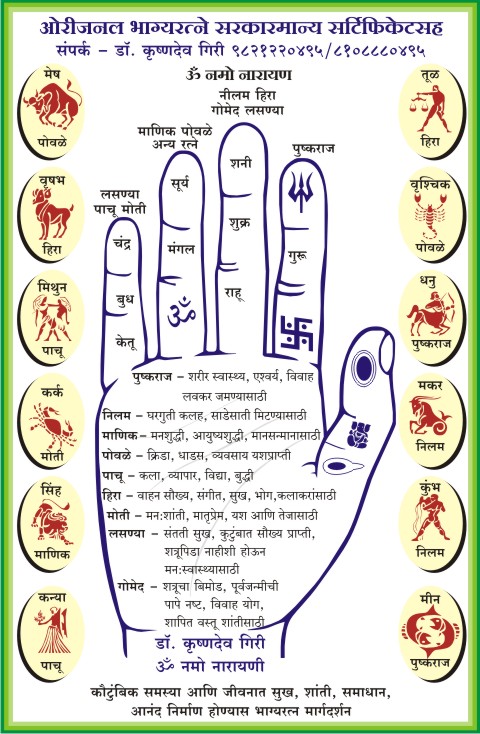 ओरीजनल भाग्यरत्ने सरकारमान्य सर्टिफिकेटसह
संपर्क - डॉ. कृष्णदेव गिरी ९८२१२२०४९५/८१०८८८०४९५
ॐ नमो नारायण
नीलम हिरा
गोमेद लसण्या
माणिक पोवळे
अन्य रत्ने
पुष्कराज
लसण्या
पाचू मोती
मेष
पोवळे
वृषभ
हिरा
मिथुन
पाचू
कर्क
मोती
सिंह
माणिक
कन्या
पाचू
तूळ
हिरा
वृश्चिक
पोवळे
धनु
पुष्कराज
मकर
निलम
कुंभ
निलम
मीन
पुष्कराज
चंद्र
बुध
केतू
सूर्य
मंगल
ॐ
शनी
शुक्र
राहू
गुरू
पुष्कराज - शरीर स्वास्थ्य, एश्वर्य, विवाह
लवकर जमण्यासाठी
निलम - घरगुती कलह, साडेसाती मिटण्यासाठी
माणिक - मनशुद्धी, आयुष्यशुद्धी, मानसन्मानासाठी
पोवळे - क्रिडा, धाडस, व्यवसाय यशप्राप्ती
पाचू - कला, व्यापार, विद्या, बुद्धी
हिरा - वाहन सौख्य, संगीत, सुख, भोग,कलाकरांसाठी
मोती - मन:शांती, मातृप्रेम, यश आणि तेजासाठी
लसण्या - संतती सुख, कुटुंबात सौख्य प्राप्ती,
शत्रूपिडा नाहीशी होऊन
मन:स्वास्थ्यासाठी
गोमेद - शत्रूचा बिमोड, पूर्वजन्मीची
पापे नष्ट, विवाह योग,
शापित वस्तू शांतीसाठी
डॉ. कृष्णदेव गिरी
ॐ नमो नारायणी
कौटुंबिक समस्या आणि जीवनात सुख, शांती, समाधान,
आनंद निर्माण होण्यास भाग्यरत्न मार्गदर्शन